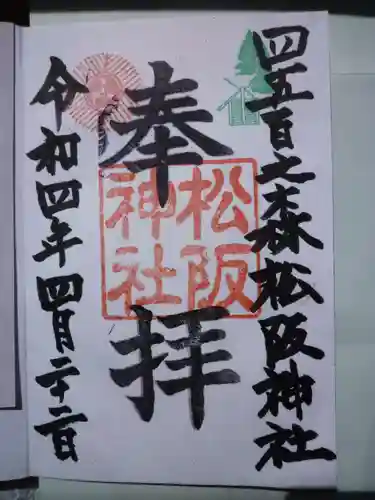 四五百之森松阪神社
奉拝
松阪
神社
令和四年四月二十二日